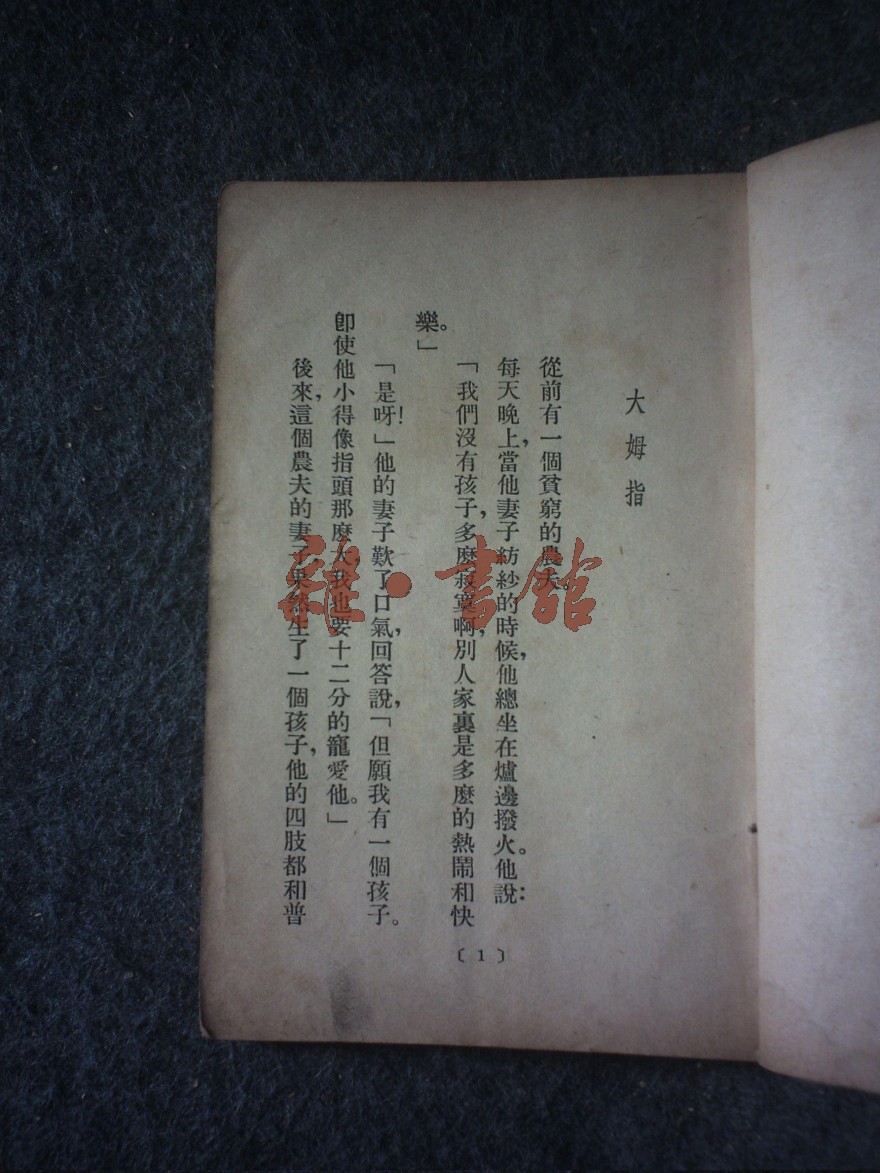 大姆指
從前有一個貧窮的農夫。
每天晚上，當他妻子紡紗的時候，他總坐在爐邊撥火。他說：
「我們沒有孩子，多麼寂寞啊，別人家裏是多麼的熱鬧和快
樂。」
「是呀！」他的妻子歎了口氣，回答說，「但願我有一個孩子。
卽使他小得像指頭那麼大，我也要十二分的寵愛他。」
後來，這個農夫的妻子果然生了一個孩子，他的四肢都和普
〔1〕
雜·書館